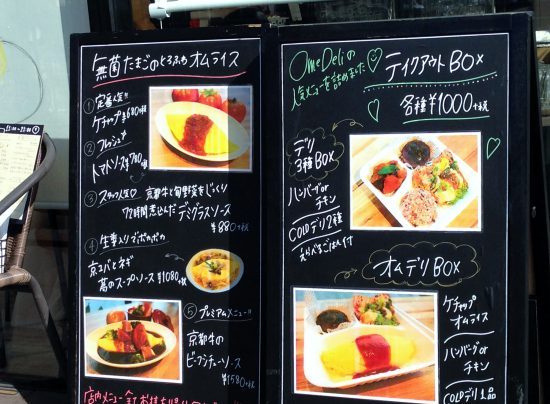 無菌たまごのとろふわオムライス
① 定番人気!!
ケチャップ ¥680+税
② フレッシュ
トマトソース ¥780+税
③ スタッフ人気♡ 京都牛と旬野菜をじっくり
72時間煮込んだデミグラスソース
¥880+税
④ 生姜入りでポカポカ
京ユバとネギ
葛のスープソース ¥1080+税
⑤ プレミアムメニュー!!
京都牛の
ビーフシチューソース
¥1580+税
店内メニュー全て
OmeDeliの
人気メニューを詰めました♡
テイクアウトBOX
各種¥1000+税
デリ
3種BOX
ハンバーグor
チキン
COLDデリ2種
えらべるごはん付
オムデリBOX
ケチャップ
オムライス
ハンバーグor
チキン
COLDデリ1品